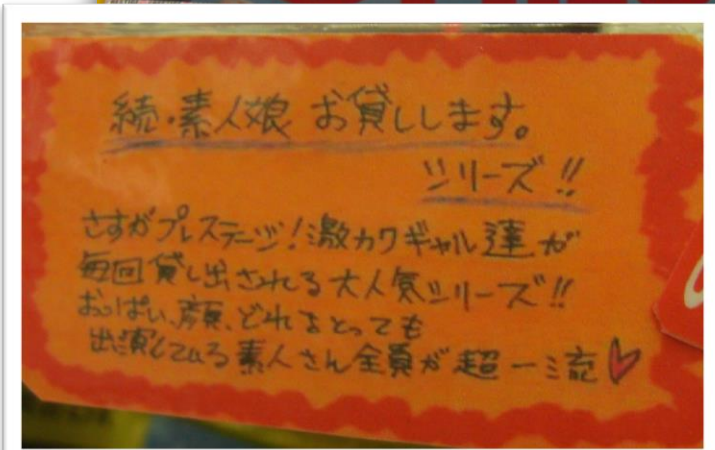 続・素人娘 お貸しします。
シリーズ!!
さすがプレステージ!激カワギャル達が
毎回貸し出される大人気シリーズ!!
おっぱい、顔、どれをとっても
出演してる素人さん全員が超一流♥